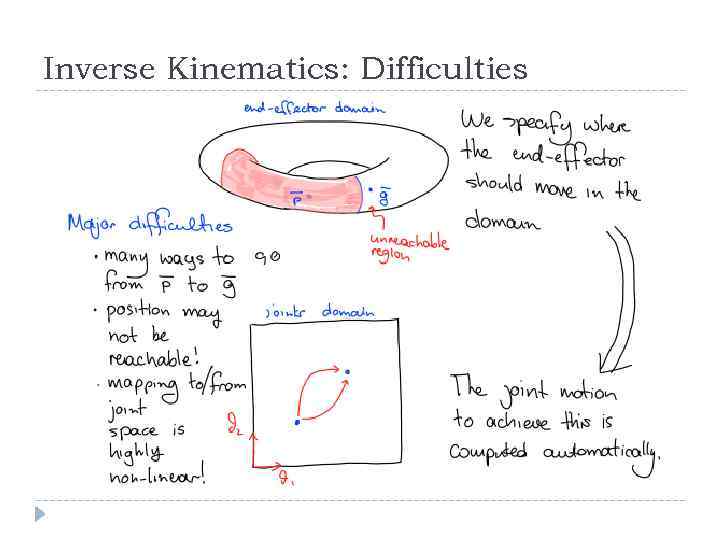 Inverse Kinematics: Difficulties
end-effector domain
We specify where
the end-effector
should move in the
domain
p
g
unreachable
region
Major difficulties
• many ways to go
from p to g
• position may
not be
reachable!
• mapping to/from
joint
space is
highly
non-linear!
joints domain
θ2
θ1
The joint motion
to achieve this is
computed automatically.